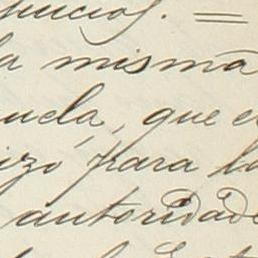 nuncios. =
la misma
uela, que e
izo para la
autoridade